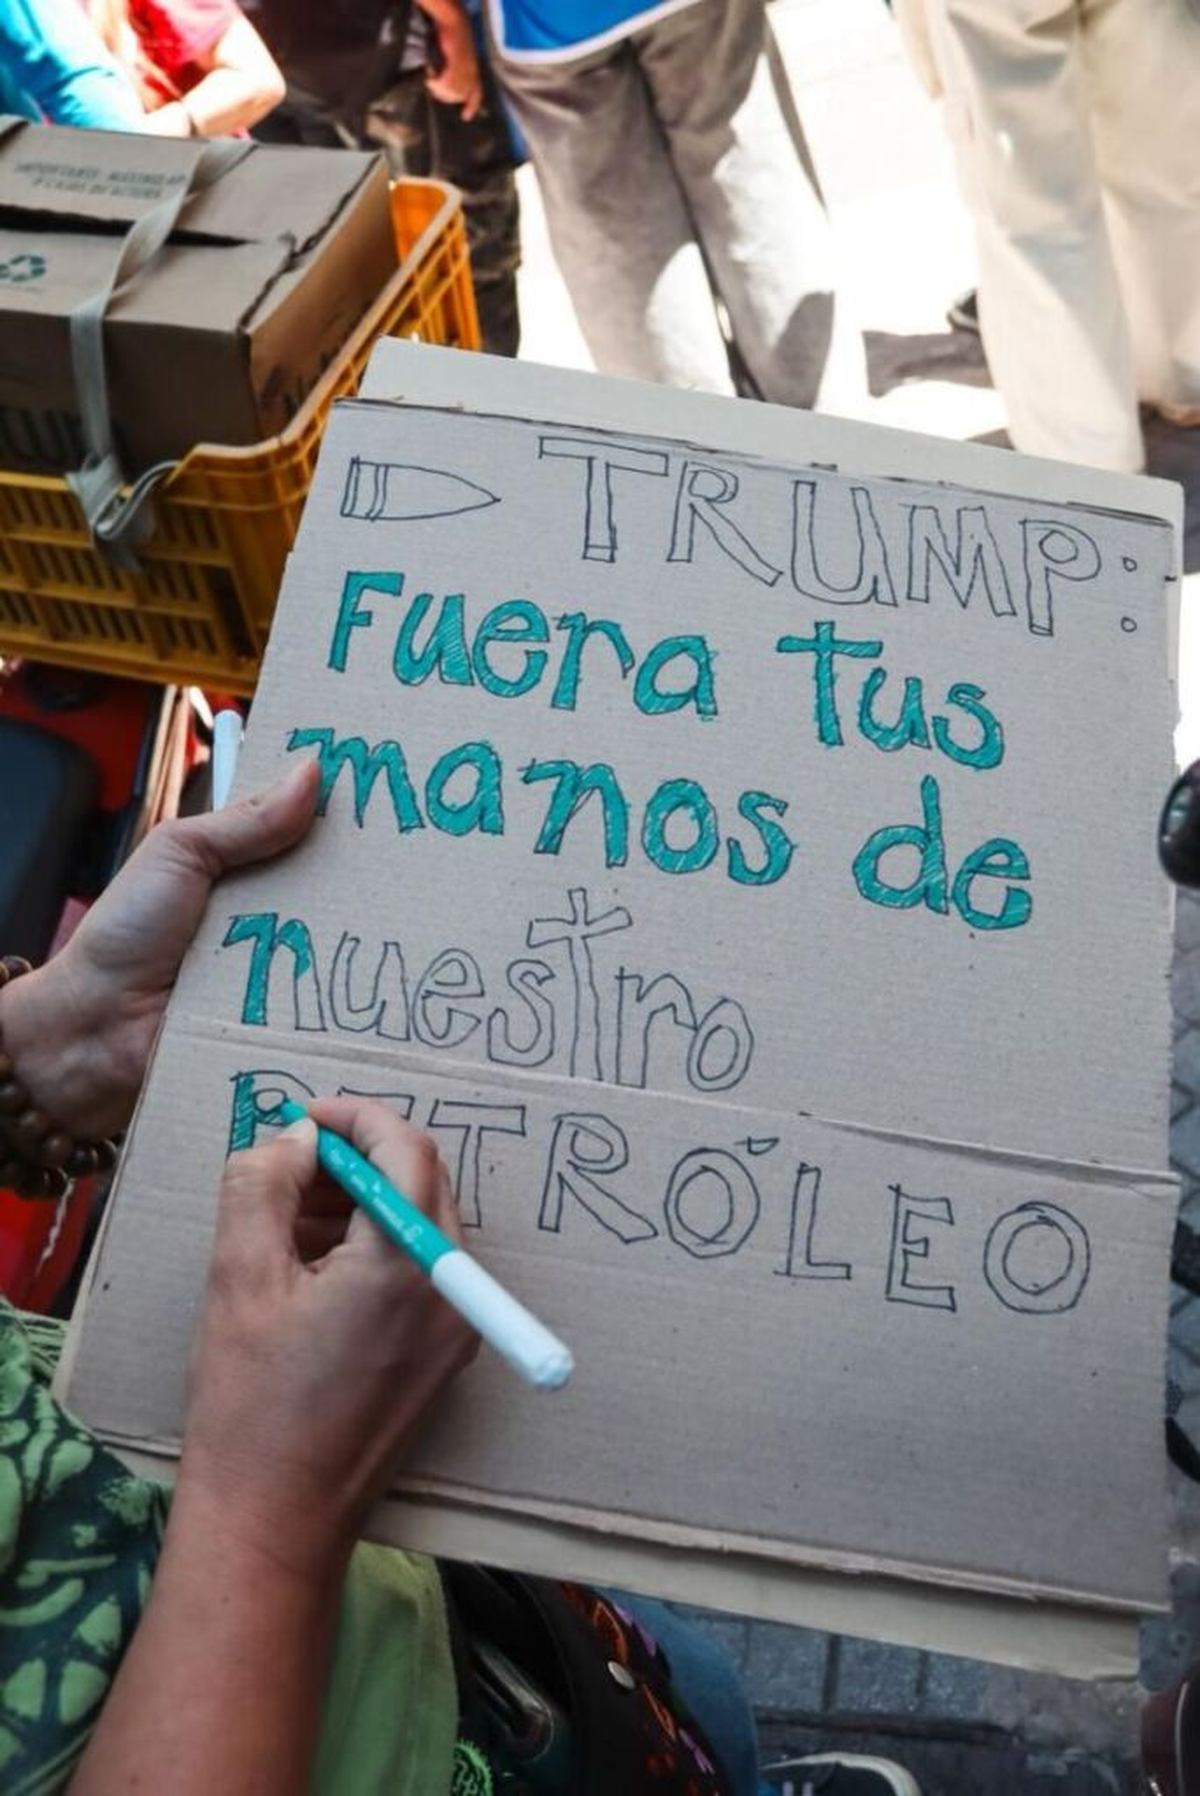 TRUMP:
Fuera tus
manos de
nuestro
PETRÓLEO